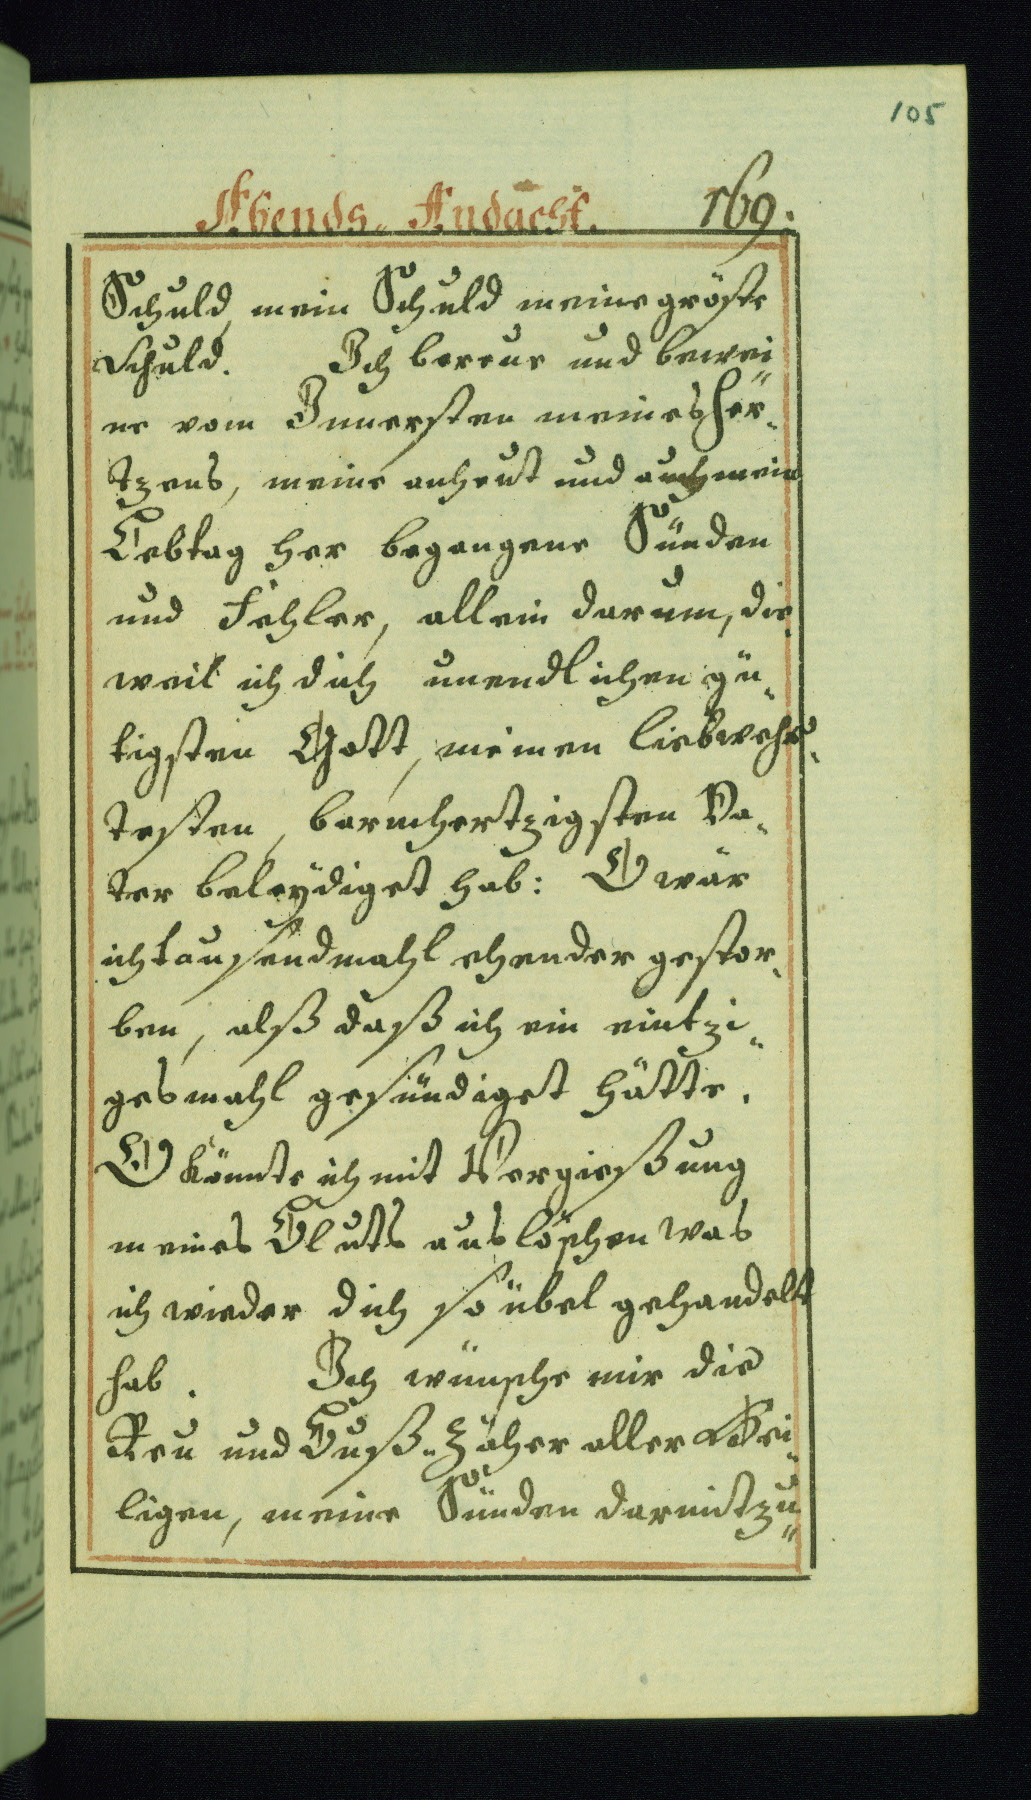 105
Abends-Andacht. 169.
Schuld, mein Schuld meine gröste
Schuld. Ich bereue und bewei
ne vom Innersten meines Her-
tzens, meine anheut und auch mein
Lebtag her begangene Sünden
und Fehler, allein darum, die-
weil ich dich unendlichen gü-
tigsten Gott, meinen liebwehr-
testen, barmhertzigsten Va-
ter beleydiget hab: O wär
ich tausendmahl ehender gestor-
ben, alß daß ich ein eintzi-
gesmahl gesündiget hätte.
O könnte ich mit Vergießung
meines Bluts auslöschen was
ich wieder dich so übel gehandelt
hab. Ich wünsche mir die
Reu und Buß-Zäher aller Hei-
ligen, meine Sünden darmit zu-